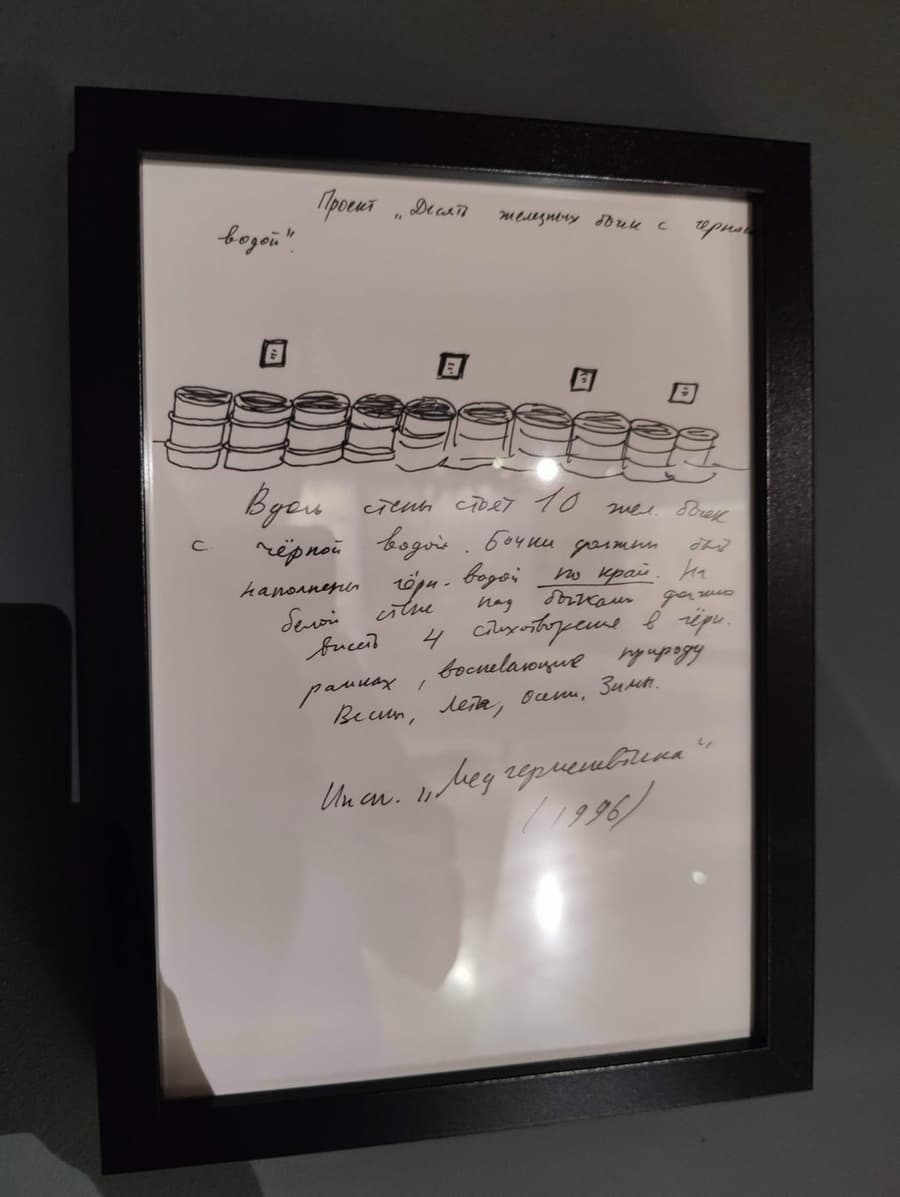 Проект „Десять железных бочек с черной
водой".
Вдоль стены стоят 10 жел. бочек
с чёрной водой. Бочки должны быть
наполнены чёрн. водой по край. На
белой стене над бочками должно
висеть 4 стихотворение в чёрн.
рамках, воспевающие природу
Весны, Лета, Осени, Зимы.
Инсп. „Медгерменевтика"
(1996)